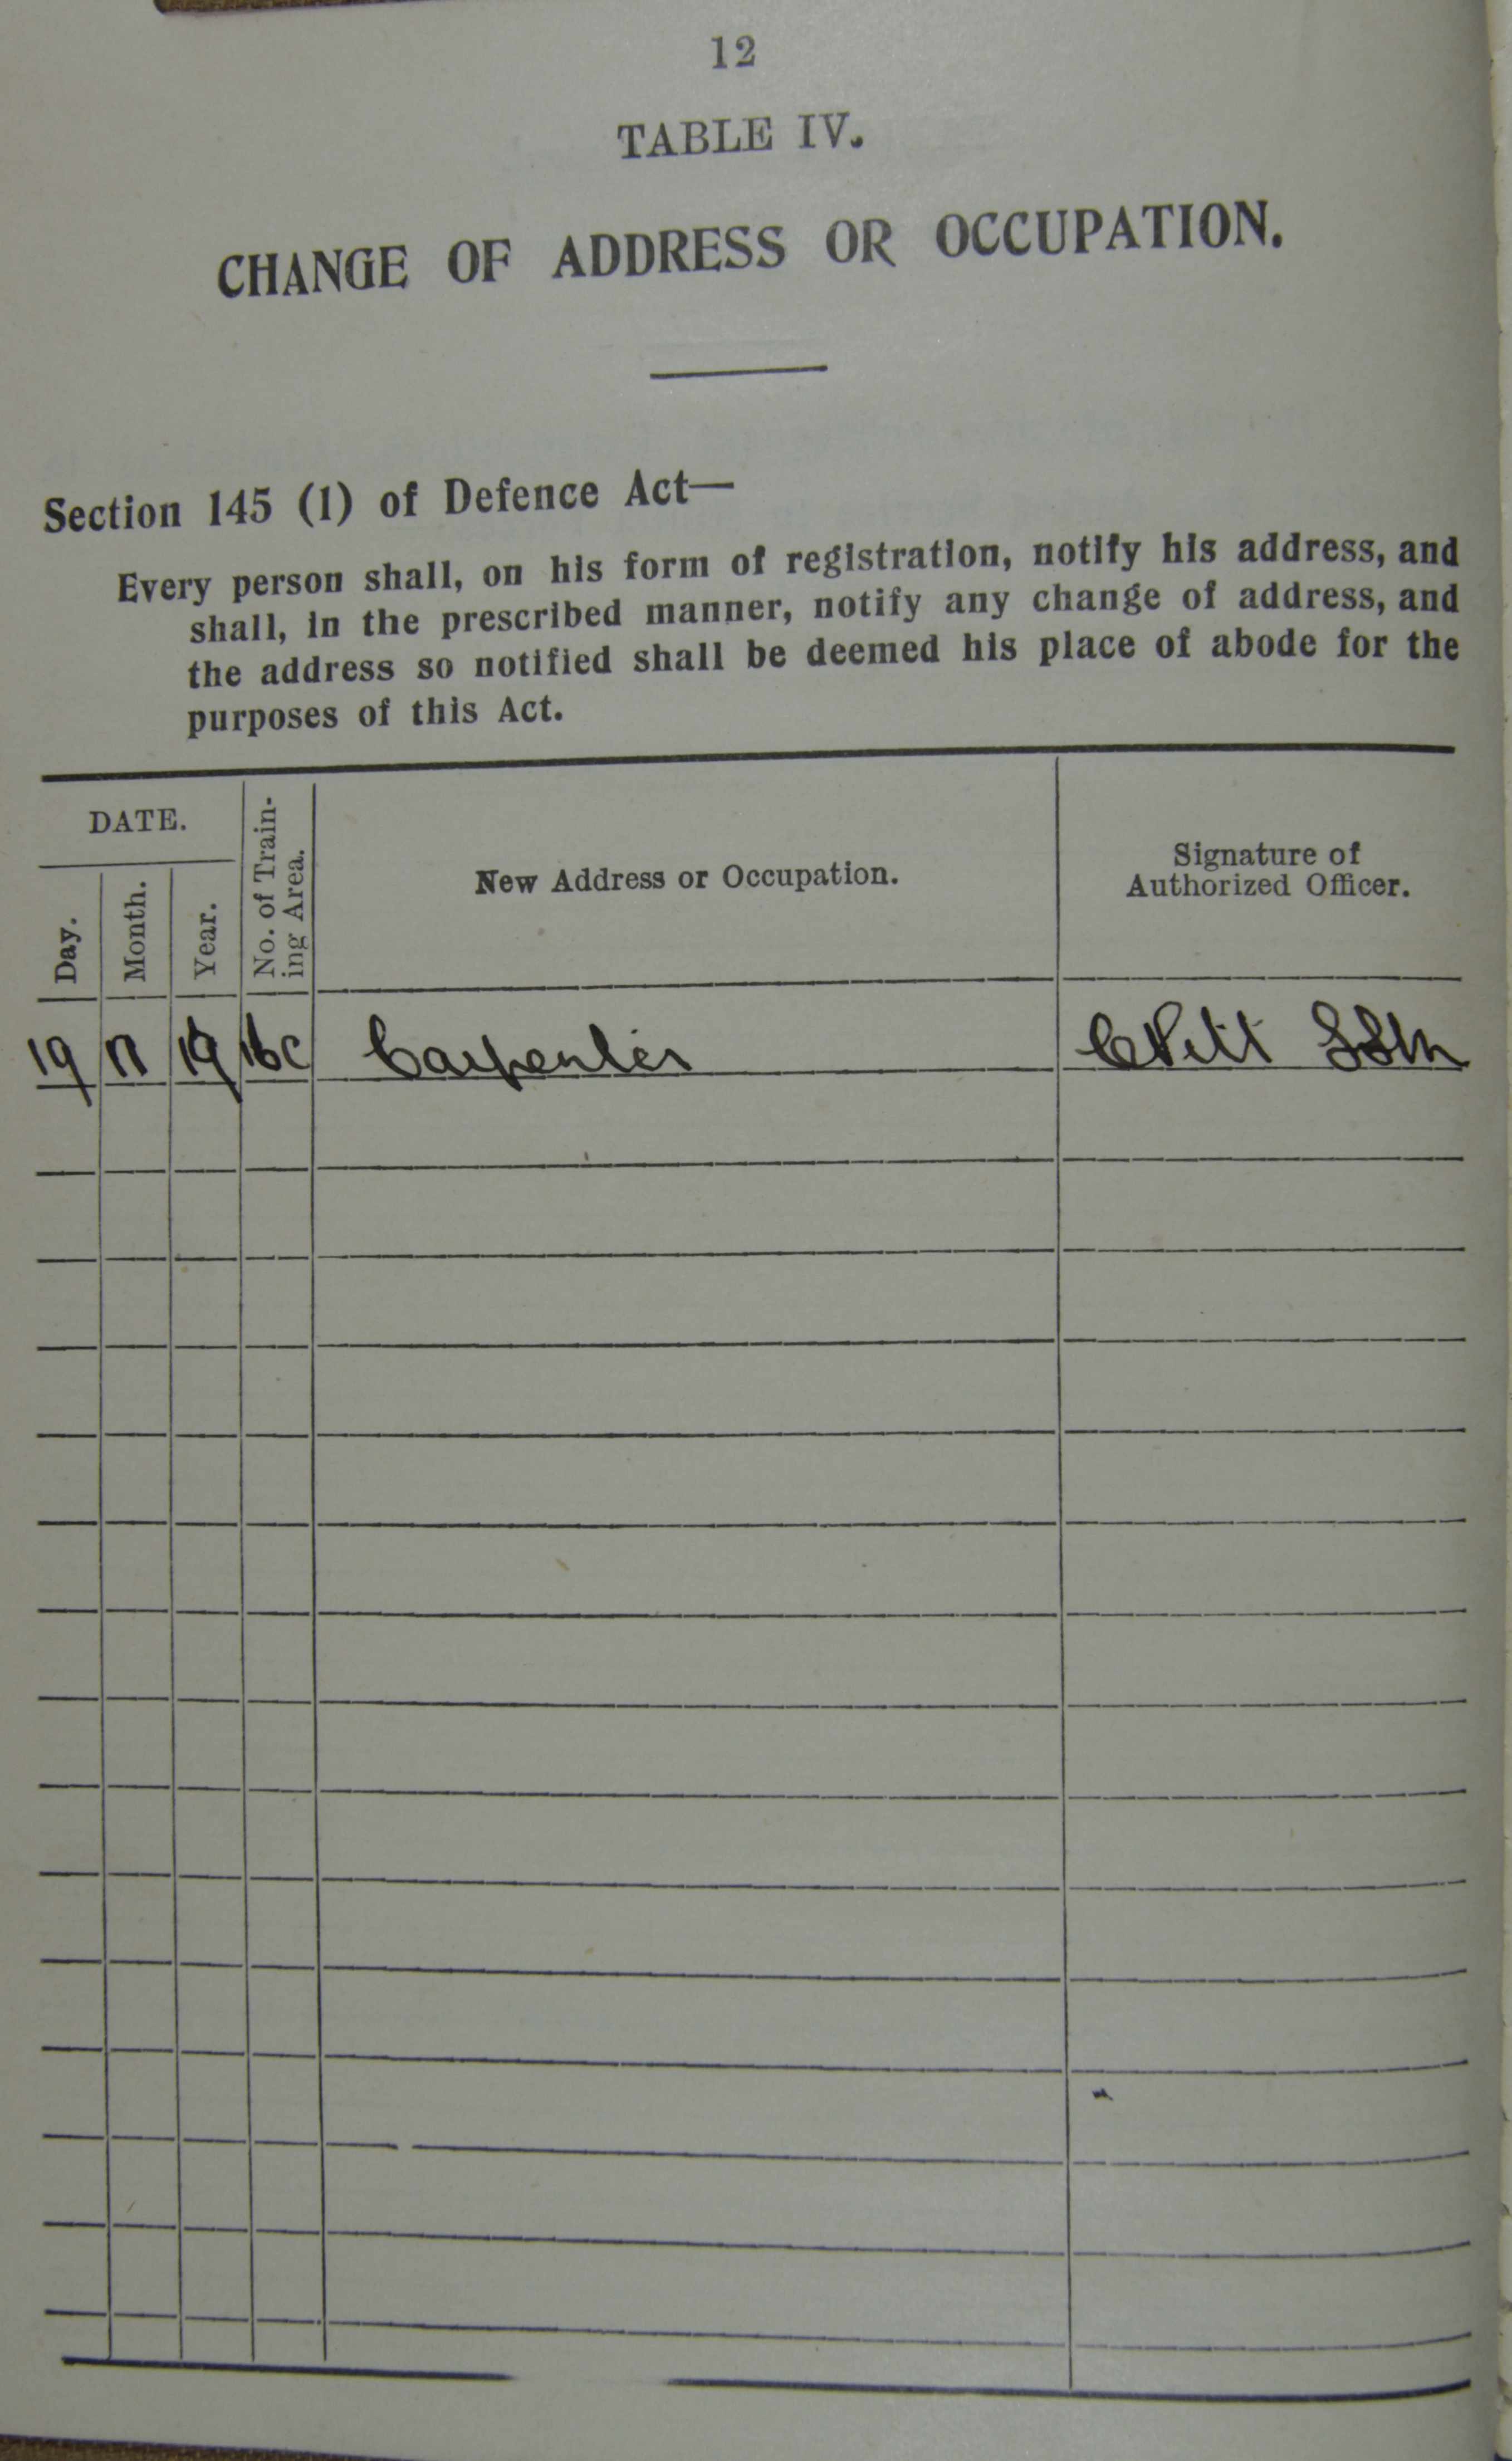 12
TABLE IV.
CHANGE OF ADDRESS OR OCCUPATION.
Section 145 (1) of Defence Act—
Every person shall, on his form of registration, notify his address, and
shall, in the prescribed manner, notify any change of address, and
the address so notified shall be deemed his place of abode for the
purposes of this Act.
DATE.
Day.
Month.
Year.
No. of Train-
ing Area.
New Address or Occupation.
Signature of
Authorized Officer.
19 19 16C Carpenter